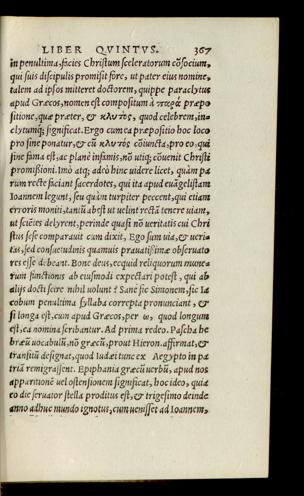 LIBER QVINTVS. 367
in penultima, facies Christum sceleratorum cōsocium,
qui suis discipulis promisit fore, ut pater eius nomine,
talem ad ipsos mitteret doctorem, quippe paraclytus
apud Græcos, nomen est compositum à παρά præpo
sitione, quæ præter, & κλυτός, quod celebrem, in=
clytumq́; significat. Ergo cum ea præpositio hoc loco
pro sine ponatur, & cū κλυτός cōiuncta, pro eo, qui
sine fama est, ac planè infamis, nō utiq; cōuenit Christi
promißioni. Imò atq; adeò hinc uidere licet, quàm pa
rum recte faciant sacerdotes, qui ita apud euāgelistam
Ioannem legunt, seu quàm turpiter peccent, qui etiam
erroris moniti, tantū abest ut uelint rectā tenere uiam,
ut scīētes delyrent, perinde quasi nō ueritatis cui Chri
stus sese comparauit cum dixit, Ego sum uia, & ueri=
tas, sed consuetudinis quamuis prauatißimæ obseruato
res esse debeant. Bone deus, ecquid reliquorum mune=
rum functionis ab eiusmodi expectari potest, qui ab
alijs docti scire nihil uolunt? Sanè sic Simonem, sic Ia
cobum penultima syllaba correpta pronunciant, &
si longa est, cum apud Græcos, per ω, quod longum
est, ea nomina scribantur. Ad prima redeo. Pascha he
bræū uocabulū, nō græcū, prout Hieron. affirmat, &
transitū designat, quod Iudæi tunc ex Aegypto in pa
triā remigrassent. Epiphania græcū uerbū, apud nos
apparitionē uel ostensionem significat, hoc ideo, quia
eo die seruator stella proditus est, & trigesimo deinde
anno adhuc mundo ignotus, cum uenisset ad Ioannem,